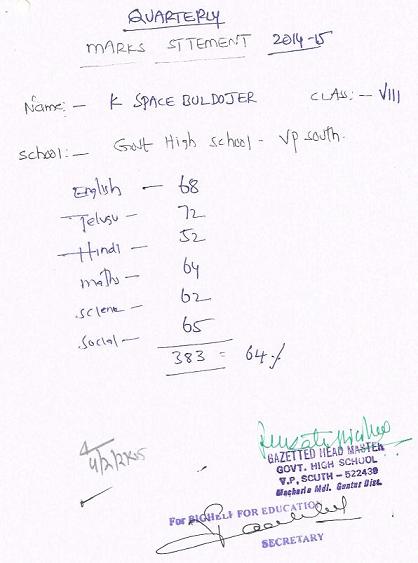 QUARTERLY
MARKS STTEMENT 2014-15
Name:- K SPACE BULDOJER CLASS:- VIII
school:- Govt High school - Vp south.
English - 68
Telugu - 72
Hindi - 52
maths - 64
sciene - 62
social - 65
383 = 64%
GAZETTED HEAD MASTER
GOVT. HIGH SCHOOL
V.P. SOUTH - 522439
Macharla Mdl. Guntur Dist.
For BIGHELP FOR EDUCATION
SECRETARY